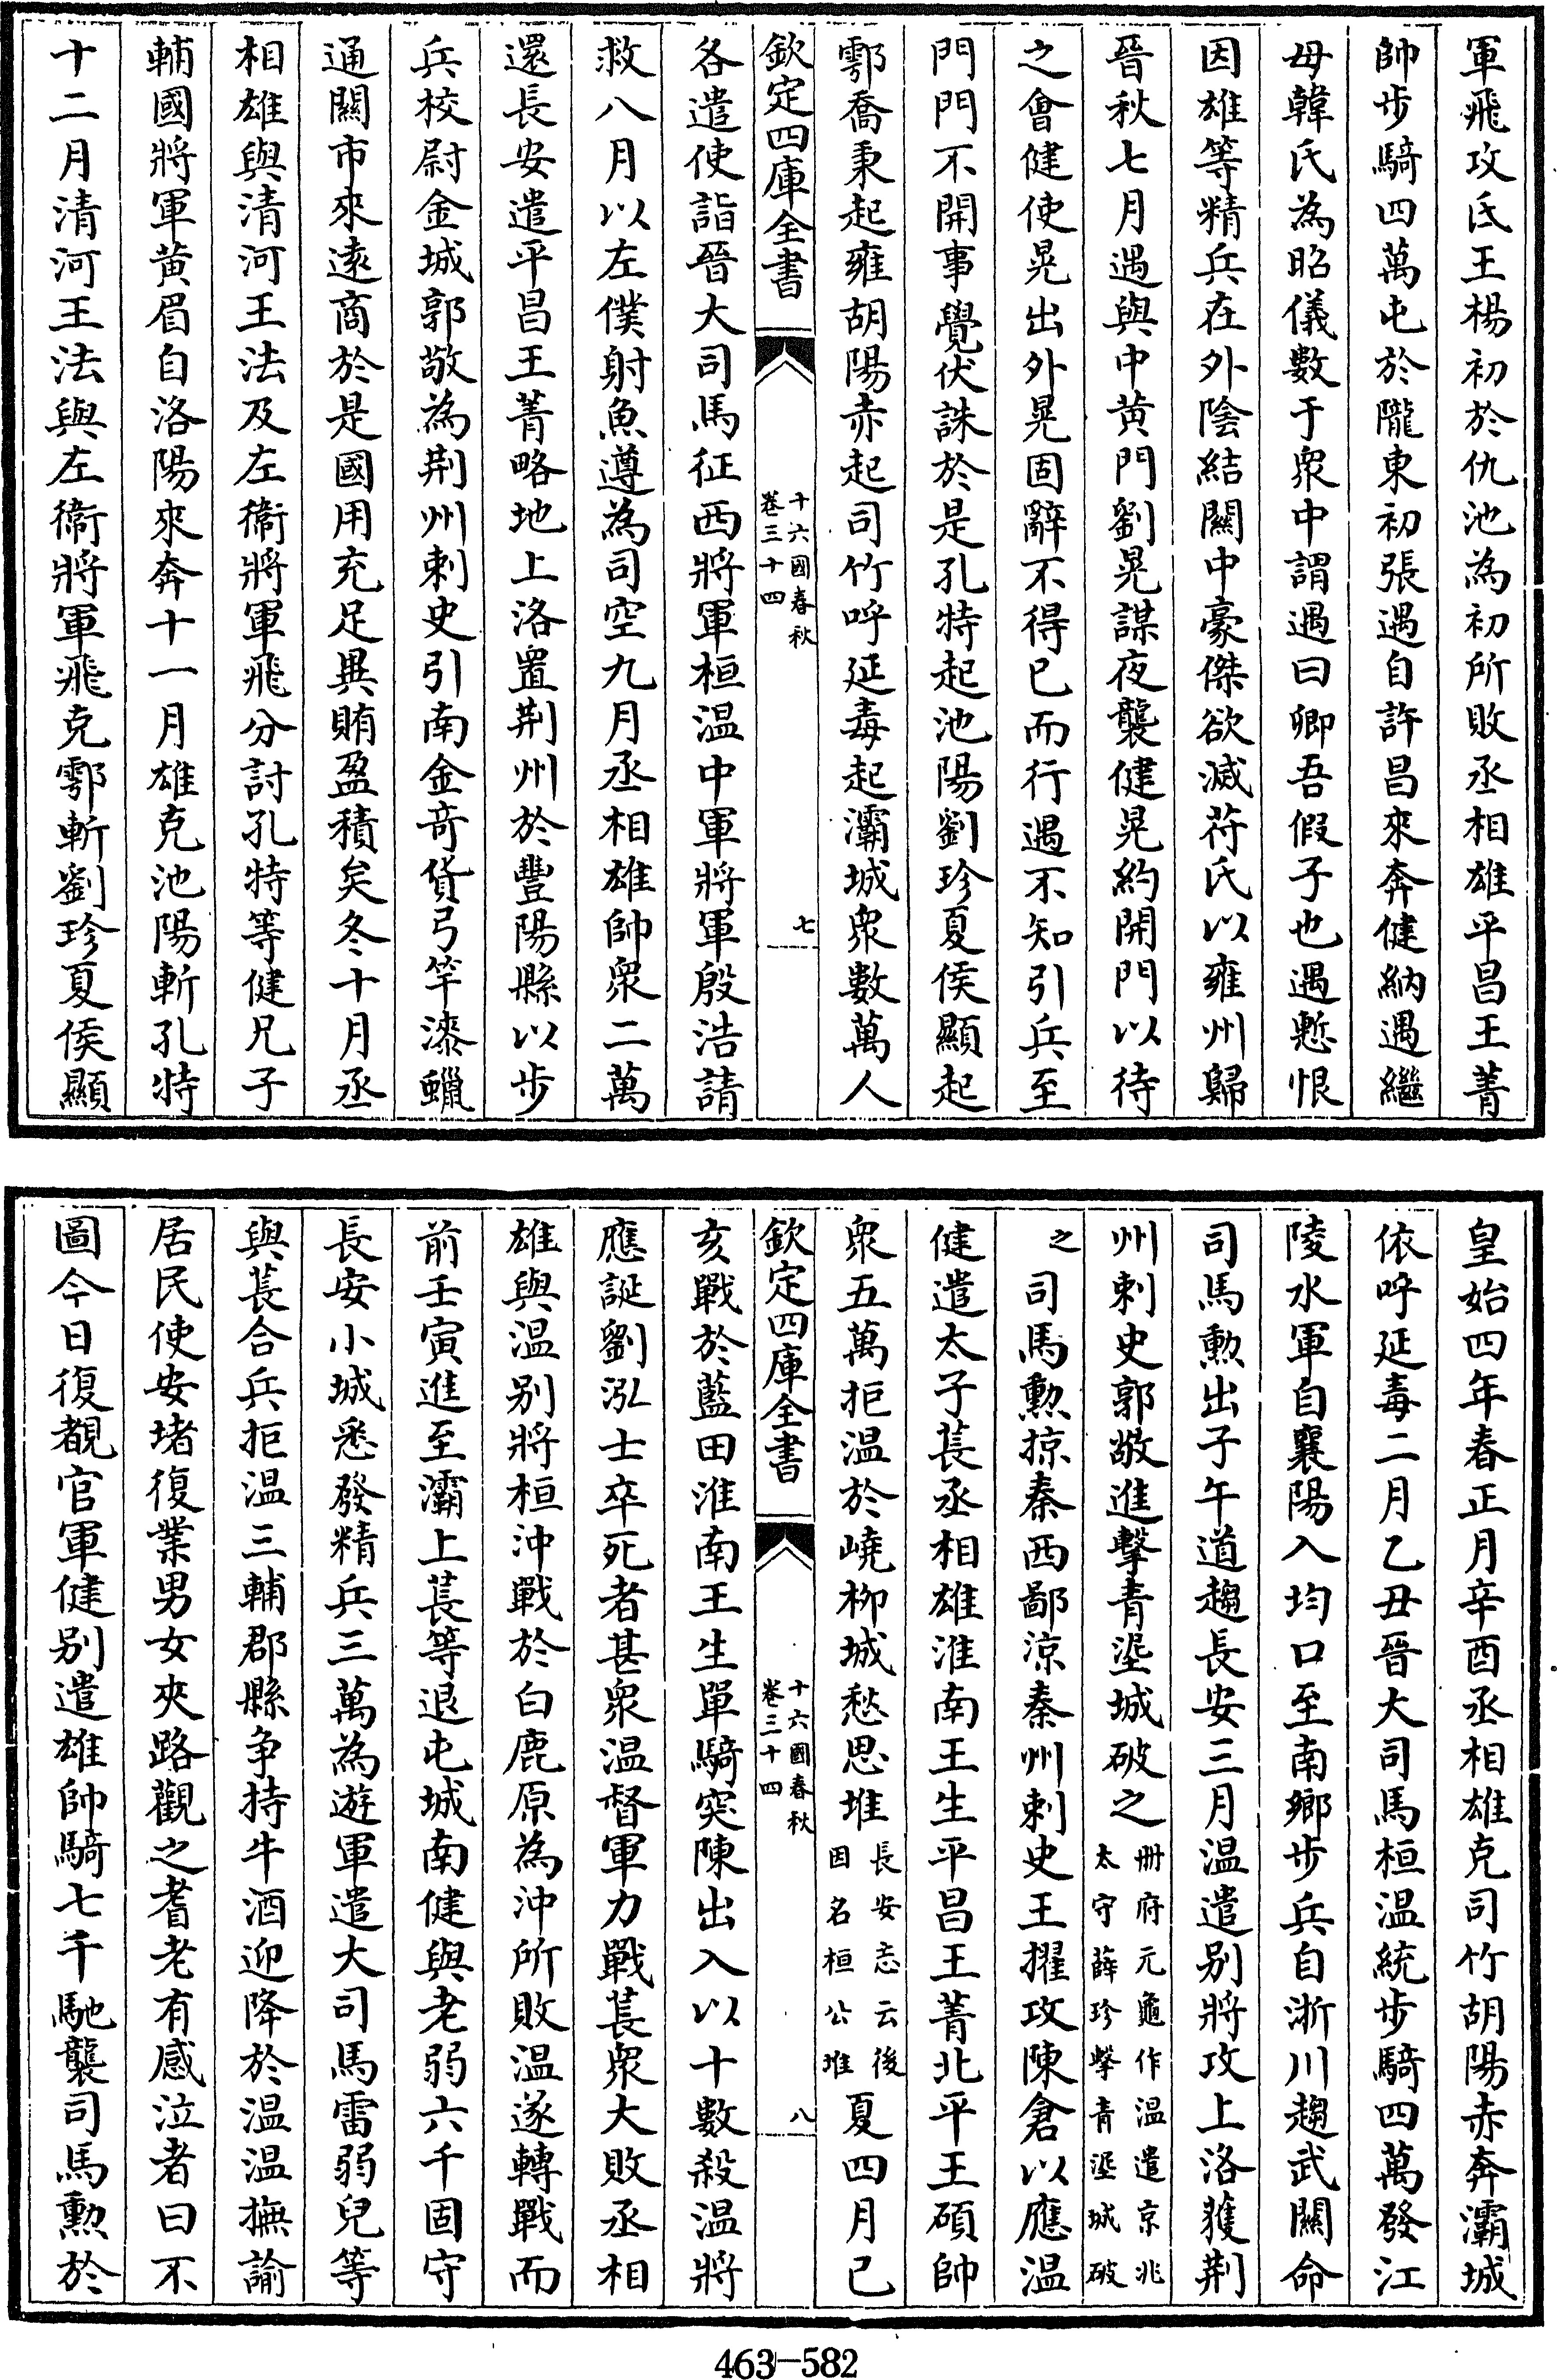 軍飛攻氐王楊初於仇池為初所敗丞相雄平昌王菁
帥步騎四萬屯於隴東初張遇自許昌來奔健納遇繼
母韓氏為昭儀數于衆中謂遇曰卿吾假子也遇慙恨
因雄等精兵在外陰結關中豪傑欲滅苻氏以雍州歸
晉秋七月遇與中黄門劉晃謀夜襲健晃約開門以待
之會健使晃出外晃固辭不得已而行遇不知引兵至
門門不開事覺伏誅於是孔特起池陽劉珍夏侯顯起
鄠喬秉起雍胡陽赤起司竹呼延毒起灞城衆數萬人
欽定四庫全書
十六國春秋
卷三十四
七
各遣使詣晉大司馬征西將軍桓温中軍將軍殷浩請
救八月以左僕射魚遵為司空九月丞相雄帥衆二萬
還長安遣平昌王菁略地上洛置荆州於豐陽縣以步
兵校尉金城郭敬為荆州刺史引南金竒貨弓竿漆蠟
通關市來遠商於是國用充足異賄盈積矣冬十月丞
相雄與清河王法及左衞將軍飛分討孔特等健兄子
輔國將軍黄眉自洛陽來奔十一月雄克池陽斬孔特
十二月清河王法與左衞將軍飛克鄠斬劉珍夏侯顯
皇始四年春正月辛酉丞相雄克司竹胡陽赤奔灞城
依呼延毒二月乙丑晉大司馬桓温統步騎四萬發江
陵水軍自襄陽入均口至南鄉步兵自淅川趨武關命
司馬勲出子午道趨長安三月温遣别將攻上洛獲荆
州刺史郭敬進擊青埿城破之册府元龜作温遣京兆
太守薛珍擊青埿城破
之司馬勲掠秦西鄙凉秦州刺史王擢攻陳倉以應温
健遣太子萇丞相雄淮南王生平昌王菁北平王碩帥
衆五萬拒温於嶢柳城愁思堆長安志云後
因名桓公堆夏四月己
欽定四庫全書
十六國春秋
卷三十四
八
亥戰於藍田淮南王生單騎突陳出入以十數殺温將
應誕劉泓士卒死者甚衆温督軍力戰萇衆大敗丞相
雄與温别將桓沖戰於白鹿原為沖所敗温遂轉戰而
前壬寅進至灞上萇等退屯城南健與老弱六千固守
長安小城悉發精兵三萬為遊軍遣大司馬雷弱兒等
與萇合兵拒温三輔郡縣争持牛酒迎降於温温撫諭
居民使安堵復業男女夾路觀之耆老有感泣者曰不
圖今日復覩官軍健别遣雄帥騎七千馳襲司馬勲於
463-582